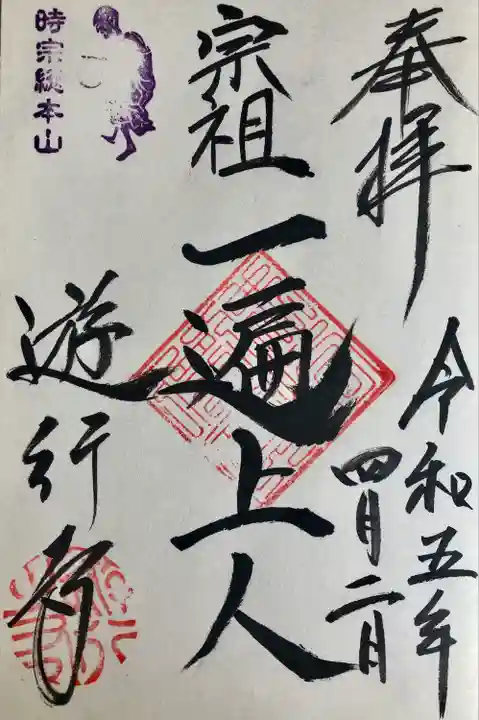 奉拝
令和五年
四月二日
宗祖一遍上人
時宗総本山
遊行寺